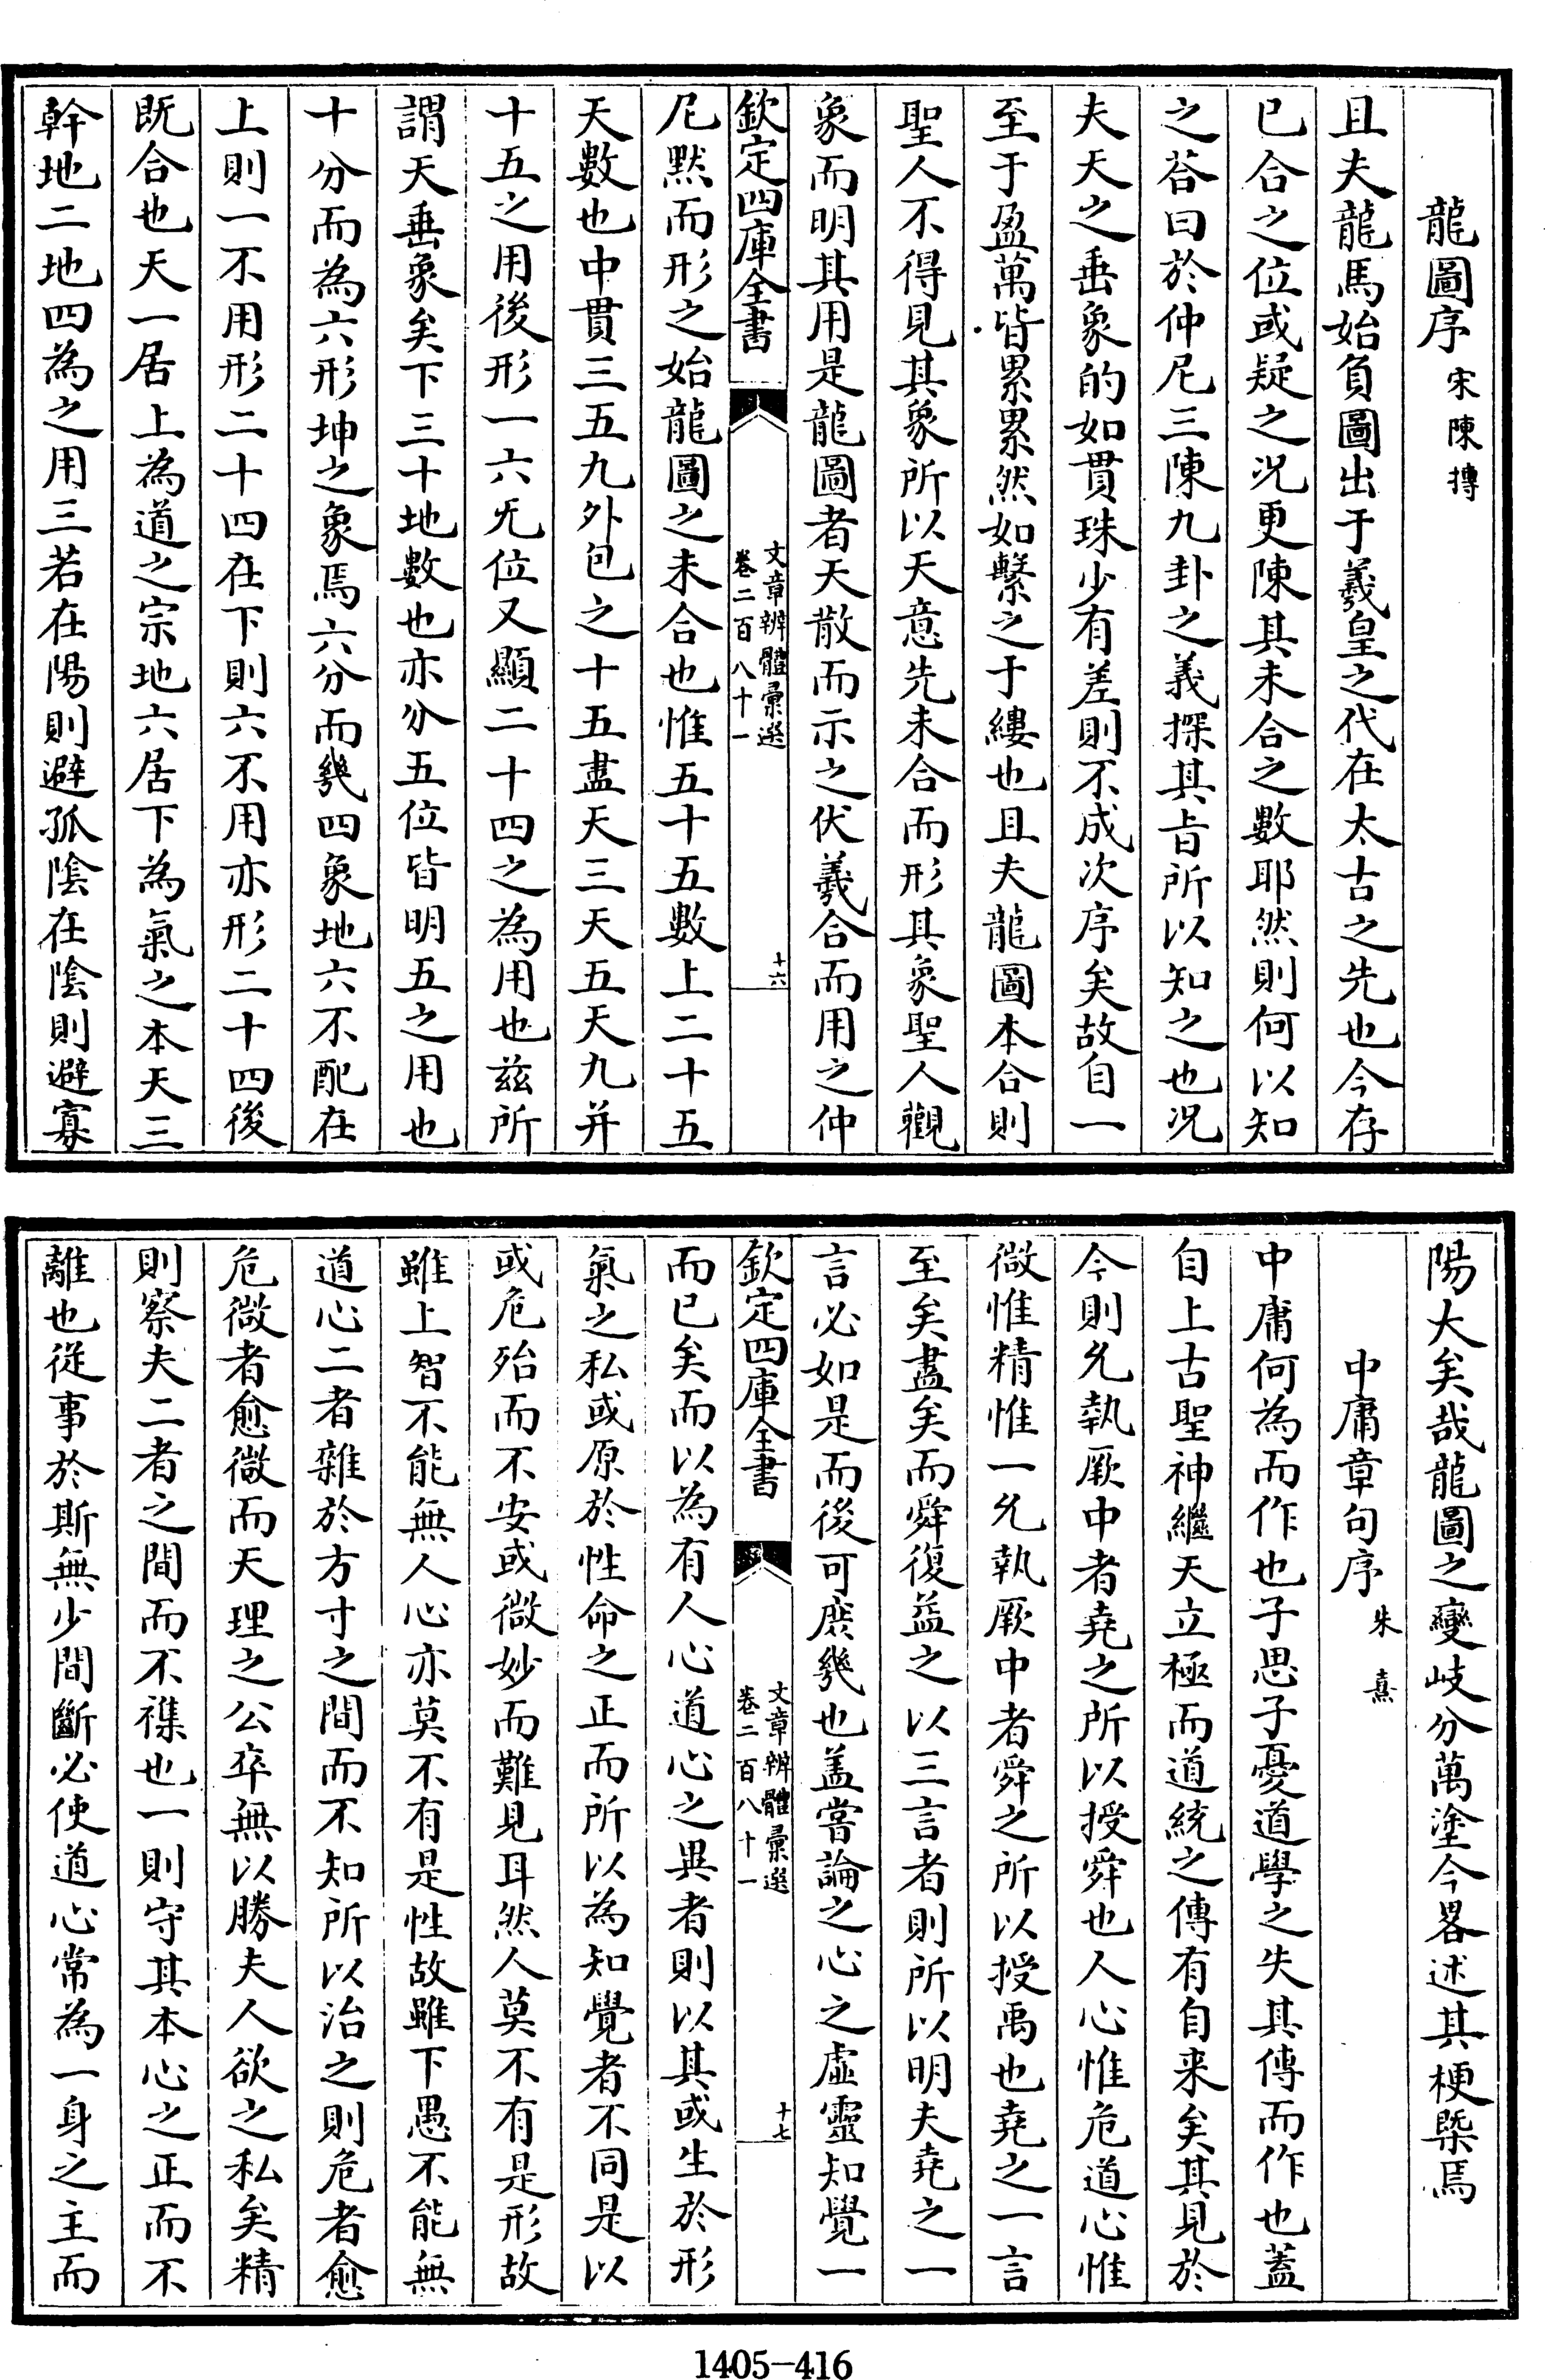 龍圖序宋陳摶
且夫龍馬始負圖出于羲皇之代在太古之先也今存
已合之位或疑之况更陳其未合之數耶然則何以知
之荅曰於仲尼三陳九卦之義探其㫖所以知之也况
夫天之垂象的如貫珠少有差則不成次序矣故自一
至于盈萬皆累累然如繫之于縷也且夫龍圖本合則
聖人不得見其象所以天意先未合而形其象聖人觀
象而明其用是龍圖者天散而示之伏羲合而用之仲
欽定四庫全書
文章辨體彙選
卷二百八十一
十六
尼黙而形之始龍圖之未合也惟五十五數上二十五
天數也中貫三五九外包之十五盡天三天五天九并
十五之用後形一六旡位又顯二十四之為用也兹所
謂天垂象矣下三十地數也亦分五位皆明五之用也
十分而為六形坤之象焉六分而幾四象地六不配在
上則一不用形二十四在下則六不用亦形二十四後
既合也天一居上為道之宗地六居下為氣之本天三
幹地二地四為之用三若在陽則避孤隂在隂則避寡
陽大矣哉龍圖之變岐分萬塗今畧述其梗槩焉
中庸章句序朱熹
中庸何為而作也子思子憂道學之失其傳而作也蓋
自上古聖神繼天立極而道統之傳有自来矣其見於
今則允執厥中者堯之所以授舜也人心惟危道心惟
微惟精惟一允執厥中者舜之所以授禹也堯之一言
至矣盡矣而舜復益之以三言者則所以明夫堯之一
言必如是而後可庶幾也盖嘗論之心之虛靈知覺一
欽定四庫全書
文章辨體彙選
卷二百八十一
十七
而已矣而以為有人心道心之異者則以其或生於形
氣之私或原於性命之正而所以為知覺者不同是以
或危殆而不安或微妙而難見耳然人莫不有是形故
雖上智不能無人心亦莫不有是性故雖下愚不能無
道心二者雜於方寸之間而不知所以治之則危者愈
危微者愈微而天理之公卒無以勝夫人欲之私矣精
則察夫二者之間而不襍也一則守其本心之正而不
離也從事於斯無少間斷必使道心常為一身之主而
1405-416